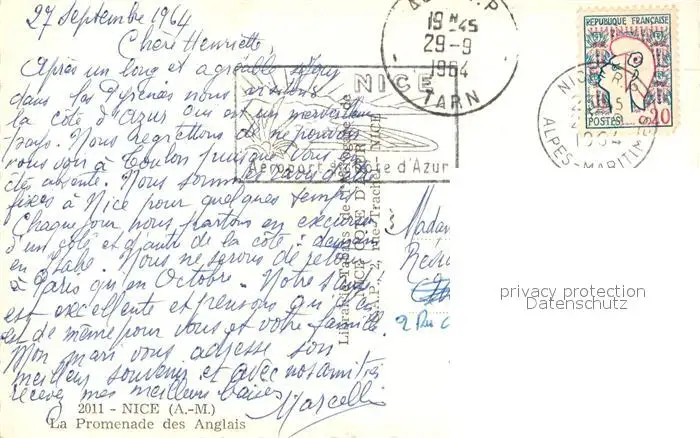 27 Septembre 1964
Chère Henriette,
Après un long et agréable séjour
dans les Pyrénées nous visitons
la côte d'azur qui est un merveilleux
pays. Nous regrettons de ne pouvoir
vous voir à Toulon puisque vous
êtes absente. Nous sommes
fixés à Nice pour quelques temps
Chaque jour nous partons en excursion
d'un côté et d'autre de la côte : demain
en Italie. Nous ne serons de retour
à Paris qu'en Octobre. Notre santé
est excellente et pensons qu'il en
est de même pour vous et votre famille.
Mon mari vous adresse son
meilleur souvenir et avec nos amitiés
recevez mes meilleurs baisers
Marcelle
2011 - NICE (A.-M.)
La Promenade des Anglais
NICE
Aéroport Côte d'Azur
19 H 45
29-9
1964
TARN
REPUBLIQUE FRANÇAISE
POSTES
0,20
NICE
1964
ALPES-MARITIMES
Librairie-Tabacs de
NICE CÔTE D'AZUR
2, rue NICE
Madame
2 Rue
privacy protection
Datenschutz